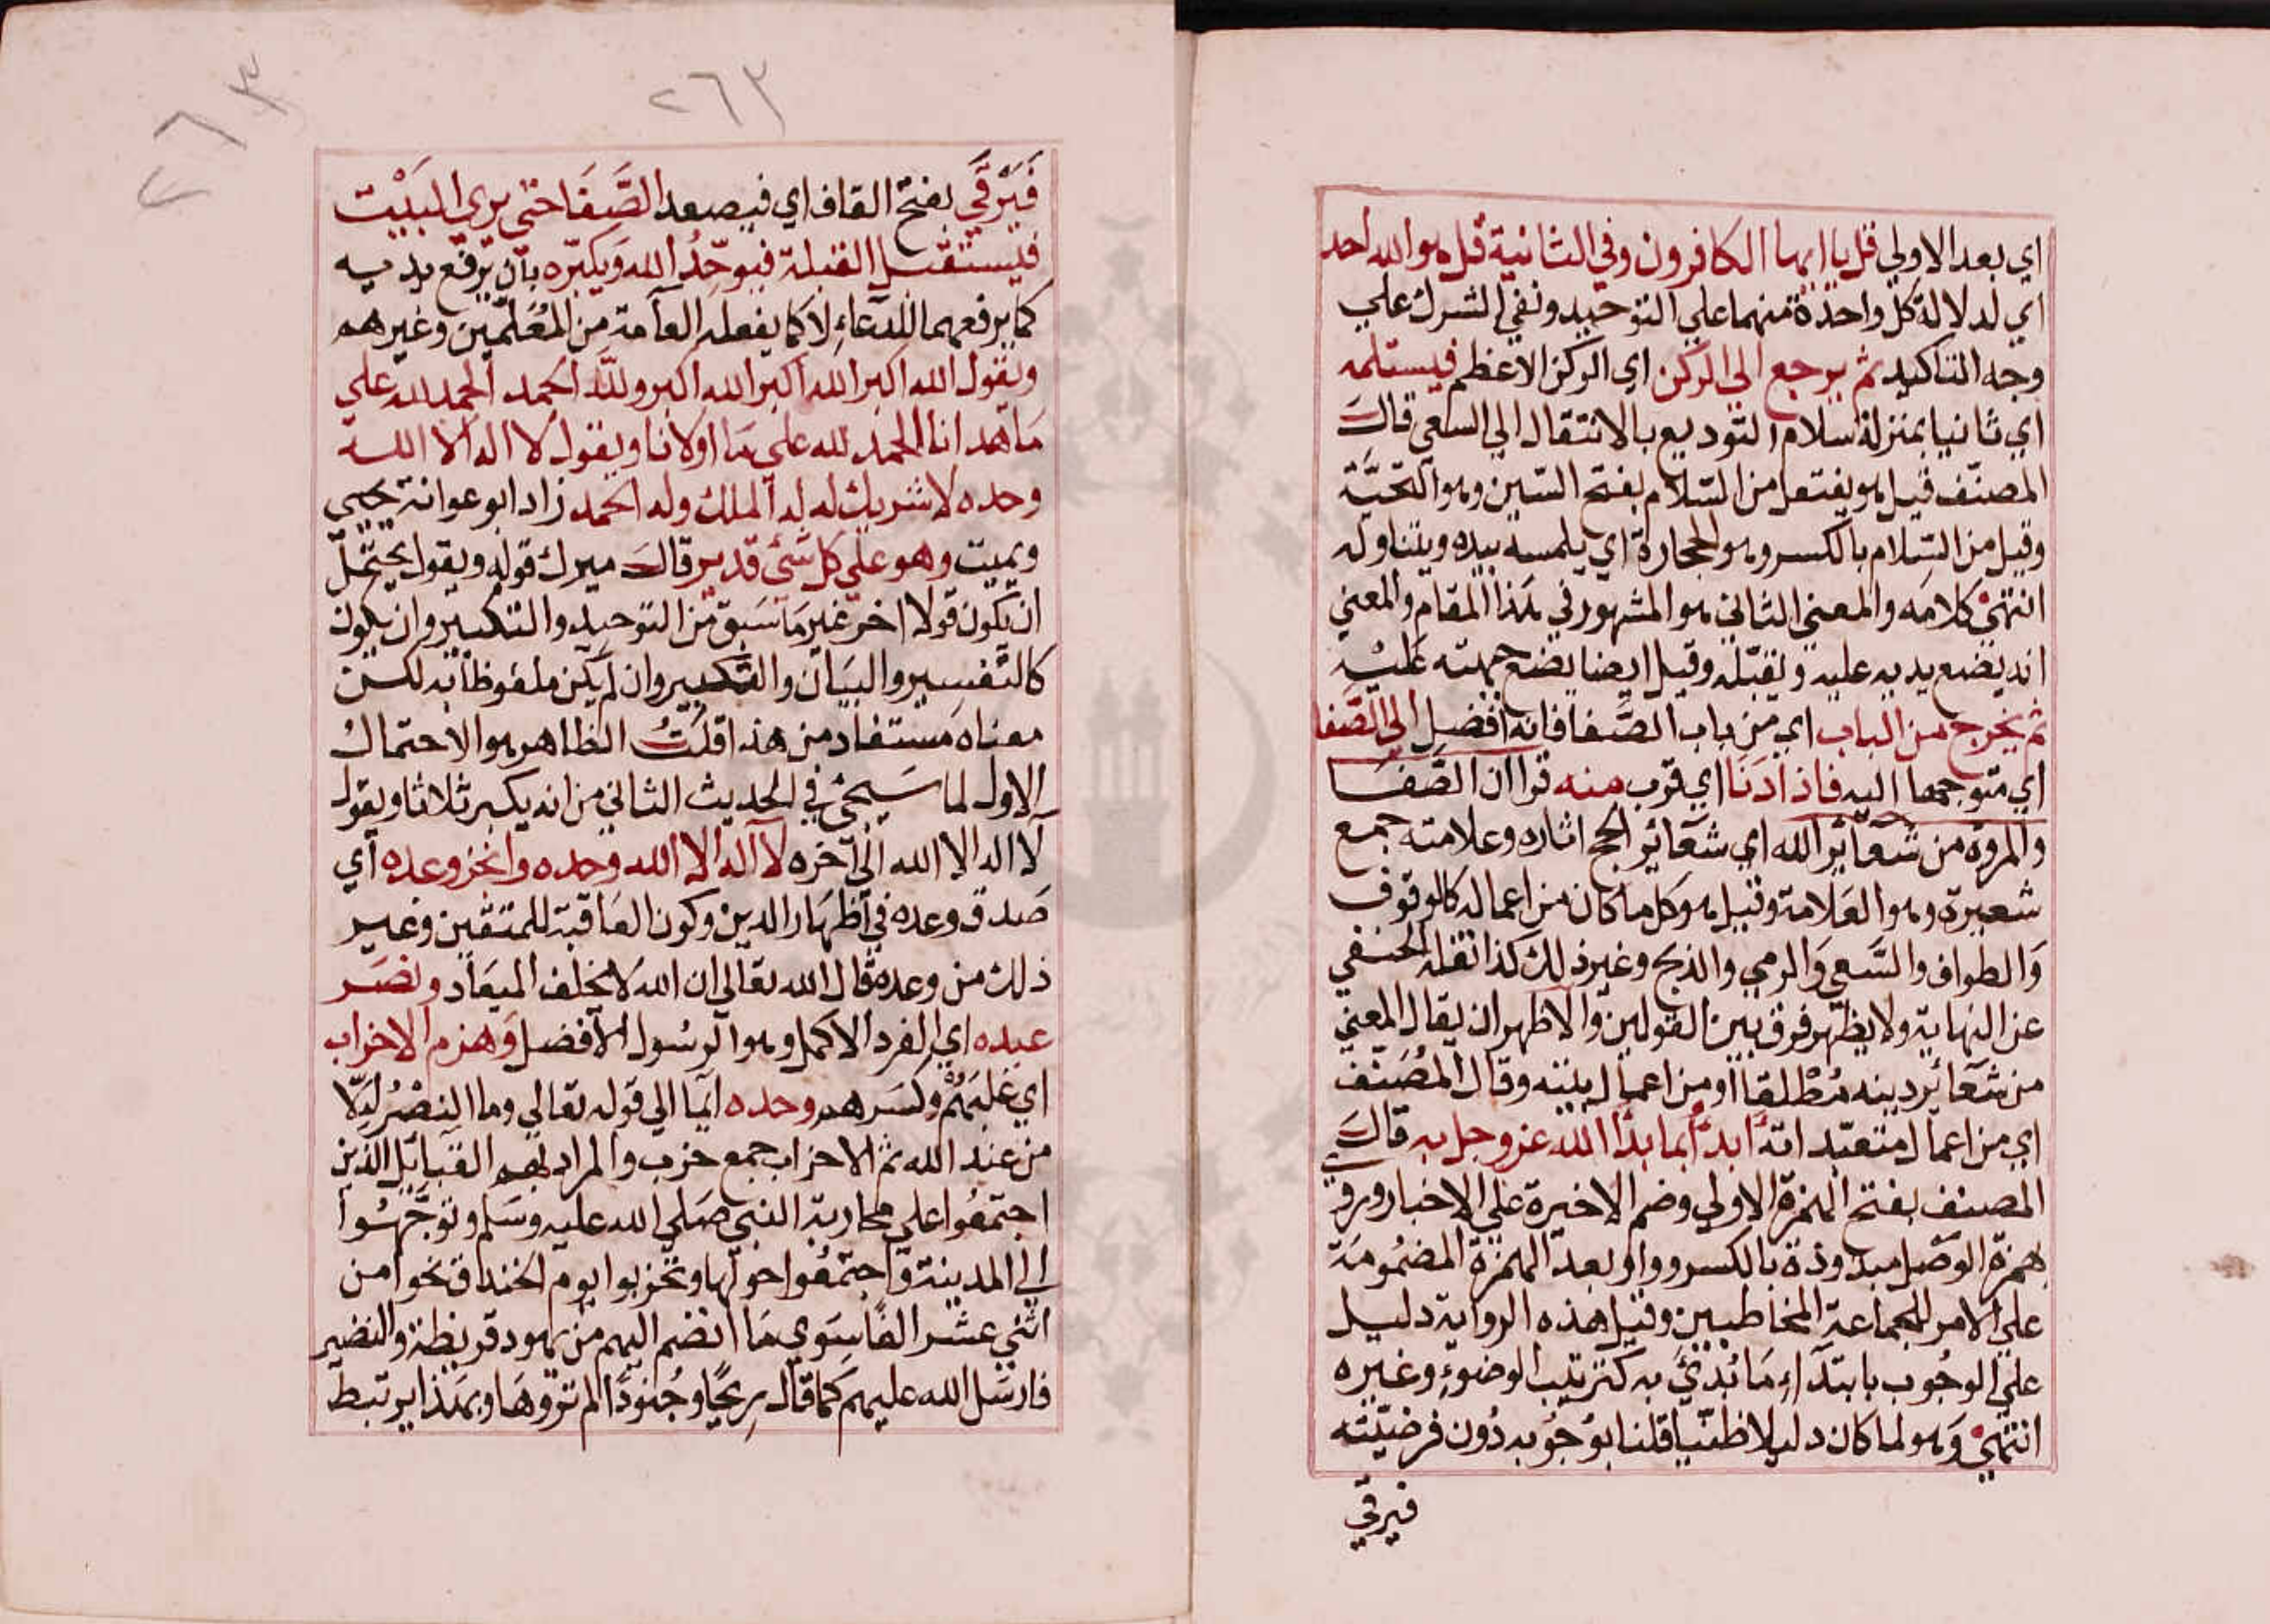 اي بعد الاولي قل يا ايها الكافرون وفي الثانية قل هو الله احد
اي لدلالة كل واحدة منهما علي التوحيد ونفي الشرك علي
وجه التاكيد ثم يرجع الي الركن اي الركن الاعظم فيستلمه
اي ثانيا بمنزلة سلام التوديع بالانتقال الي السعي قال
المصنف قيل هو يفتعل من السَّلام بفتح السين وهو التحيَّة
وقيل من السِّلام بالكسر وهو الحجارة اي يلمسه بيده ويتناوله
انتهيٰ كلامه والمعني الثاني هو المشهور في هذا المقام والمعني
انه يضع يديه عليه ويقبّله وقيل ايضا يضع جبهته عَليْه
ثم يخرج من الباب اي من باب الصَّفا فانه افضل الي الصَّفا
اي متوجها اليه فاذا دَنَا اي قرب منه قرا ان الصَّفَا
والمروة من شعآئر الله اي شعَائر الحج اثاره وعلامته جمع
شعيرة وهو العَلامة وقيل هو كل ما كان من اعماله كالوقوف
وَالطواف والسَّعي وَالرمي والذبح وغير ذلك كذا نقله الحنفي
عن النهاية ولا يظهر فرق بين القولين والاظهر ان يقال المعني
من شعآئر دينه مُطْلقا او من اعمال بيته وقال المُصَنّف
اي من اعمال متعبّداته أبدأُ بما بدأ الله عز وجل به قال
المصنف بفتح الهمزة الاولي وضم الاخيرة علي الاخبار وروي
بهمزة الوَصل مبدوذة بالكسر وواو بعد الهمزة المضمُومَة
علي الامر للجماعة المخاطبين وقيل هذه الرواية دليل
علي الوجُوب بابتدآء مَا بُدئَ به كترتيب الوضوءِ وغيره
انتهيٰ وَهو لما كان دليلا ظنّيا قلنا بوُجُوبه دُون فرضيّته
فيرقي
٢٦٣
٢٦٣
فَيَرْقَي بفتح القاف اي فيصعد الصَّفَا حتي يري البَيْت
فيستقبل القبلة فيوحّدُ الله وَيكبّره بان يرفع يديه
كما يرفعهما للدعآءِ لا كما يفعله العآمة من المُعَلّمين وغيرهم
ويقول الله اكبر الله اكبر الله اكبر ولله الحمد الحمد لله علي
مَا هدانا الحمد لله علي مَا اولانا ويقول لا اله الا الله
وحده لا شريك له له الملك وله الحمد زاد ابو عوانة يحيي
ويميت وهو علي كل شئ قدير قال ميرك قوله ويقول يحتمل
ان يكون قولا اخر غير مَا سَبق من التوحيد والتكبير وان يكون
كالتفسير والبيَان والتكبير وان لم يكن ملفوظا به لكن
معناه مستفاد من هذا قلتُ الظاهر هو الاحتمال
الاول لما سَيجئ في الحديث الثاني من انه يكبر ثلاثا ويقول
لا اله الا الله الي آخره لا اله الا الله وحده وانجز وعده اي
صَدق وعده في اظهَار الدين وكون العَاقبة للمتقين وغير
ذلك من وعده قال الله تعالي ان الله لا يخلف الميعَاد ونصَر
عبده اي الفرد الاكمل وهو الرسُول الافضل وَهزم الاحزاب
اي غلبَهُمْ وكسَرهم وحده ايمآ الي قوله تعالي وما النصْرُ اِلّا
من عند الله ثم الاحزاب جمع حزب والمراد بهم القبآئل الذين
اجتمعُوا علي محاربة النبي صَلي الله عليه وسَلم وتوجَّهُوا
الي المدينة وَاجتمعُوا حولها وتحزبوا يوم الخندق نحوا من
اثني عشر الفًا سِوي مَا انضم اليهم من يهود قريظة والنضير
فارسَل الله عليهم كما قال ريحًا وجُنودًا لم تروهَا وبهذا يرتبط